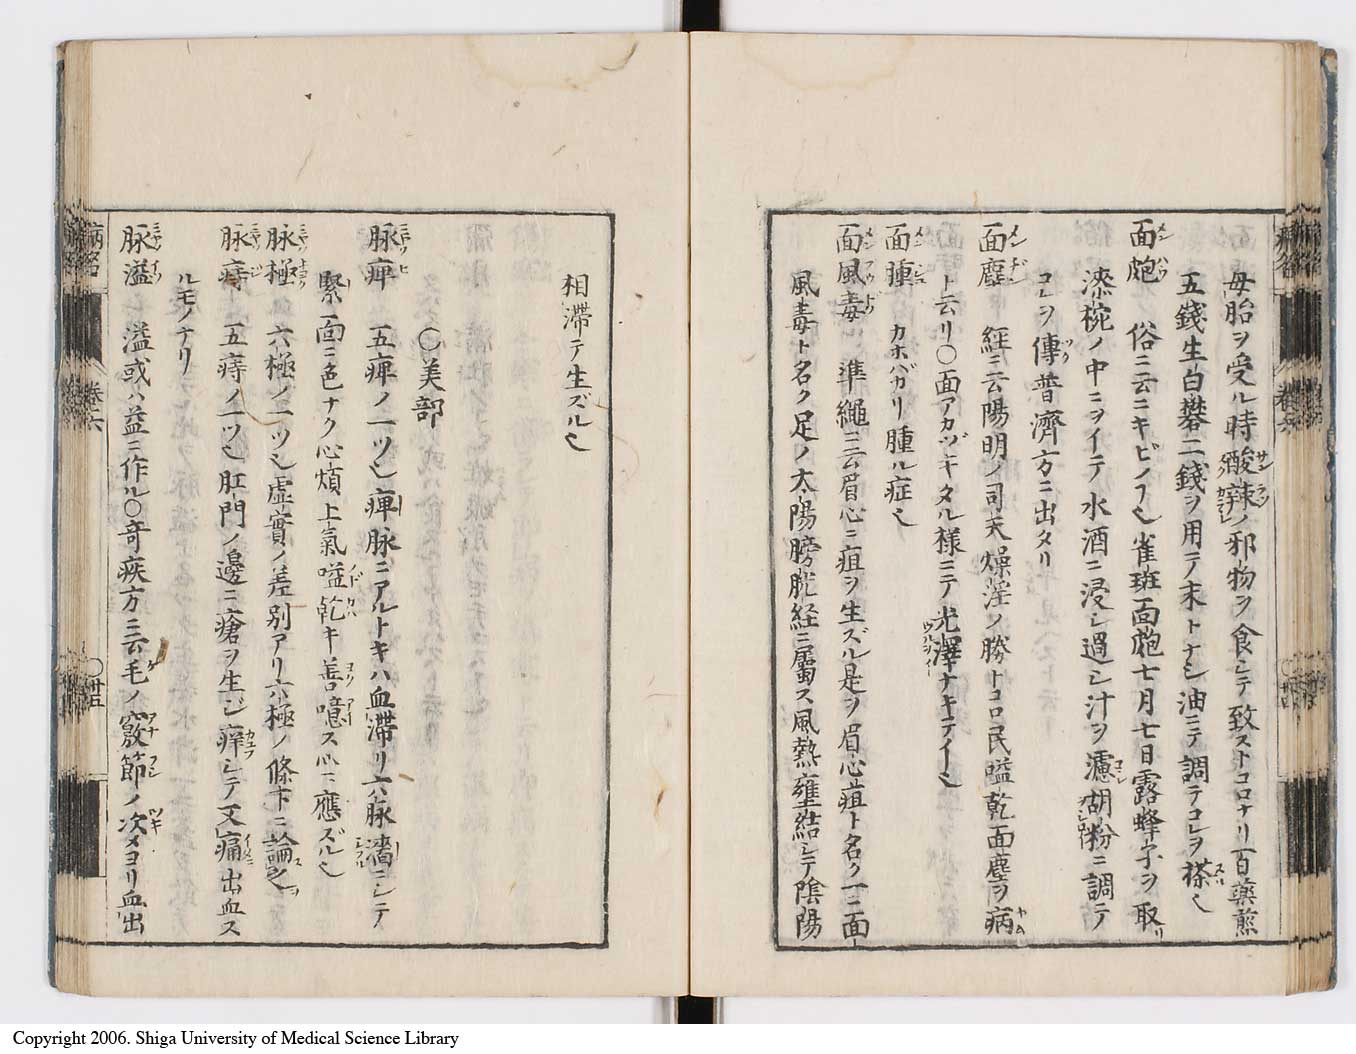 母胎ヲ受ル時酸辣ノ邪物ヲ食シテ致ストコロナリ百藥煎
五錢生白礬二錢ヲ用テ末トナシ油ニテ調テコレヲ搽也
面皰 俗ニ云ニキビノフ也雀斑面皰七月七日露蜂子ヲ取
漆椀ノ中ニヲイテ水酒ニ浸シ過シ汁ヲ濾胡粉ニ調テ
コレヲ傳普濟方ニ出タリ
面塵 経ニ云陽明ノ司天燥淫ノ勝トコロ民嗌乾面塵ヲ病
ト云リ〇面アカヅキタル様ニテ光澤ナキテイ也
面腫 カホバカリ腫ル症也
面風毒 準繩ニ云眉心ニ疽ヲ生ズル是ヲ眉心疽ト名ク一ニ面ー
風毒ト名ク足ノ太陽膀胱経ニ屬ス風熱壅結シテ陰陽
相滯テ生ズル也
〇美部
脉痺 五痺ノ一ツ也痺脉ニアルトキハ血滯リ六脉濇ニシテ
緊面ニ色ナク心煩上氣嗌乾キ善噫ス心ニ應ズル也
脉極 六極ノ一ツ也虚實ノ差別アリ六極ノ條下ニ論之
脉痔 五痔ノ一ツ也肛門ノ邊ニ瘡ヲ生ジ痒シテ又痛出血ス
ルモノナリ
脉溢 溢或ハ益ニ作ル〇奇疾方ニ云毛ノ竅節ノ次メヨリ血出
病名
卷六
〇廿五
Copyright 2006. Shiga University of Medical Science Library